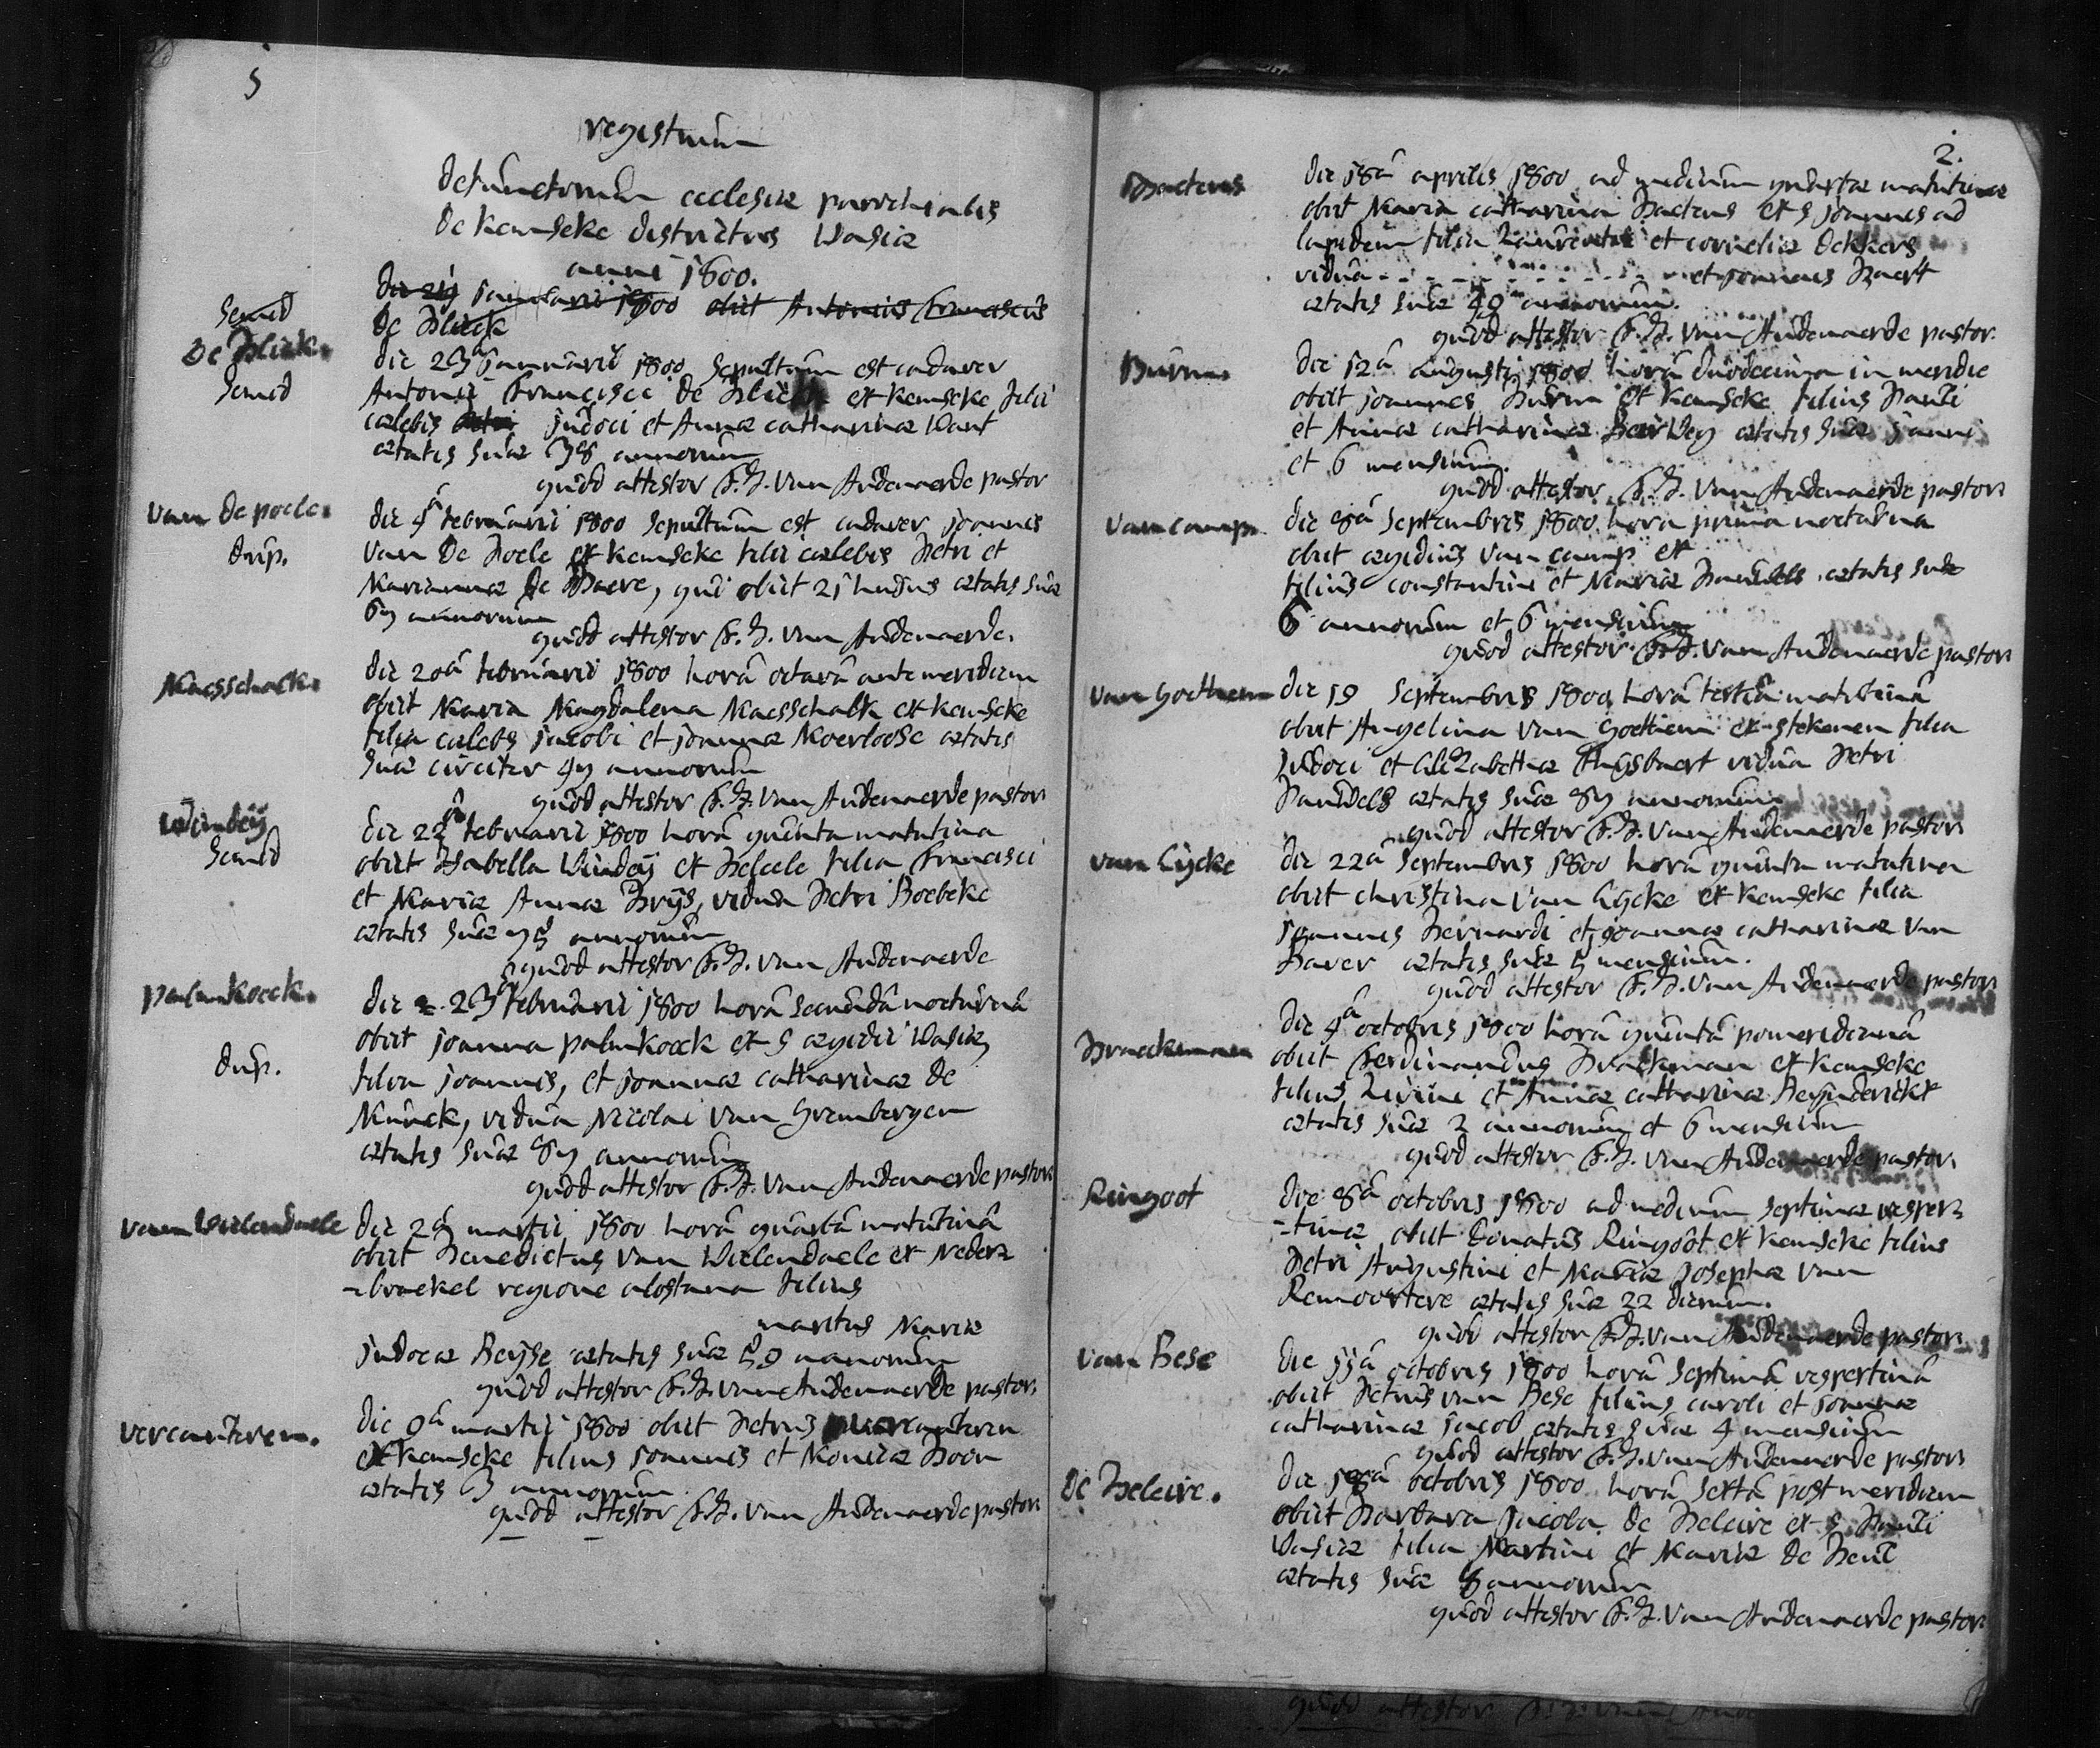 registrum
defunctorum ecclesiæ parochialis
de kemseke districtus Wasiæ
anni 1800.
die januarii 1800 obiit Antonius Franciscus
de Blieck
Semid
De Bliek.
Semid
die januarii 1800 sepultum est cadaver
Antonii Francisci de ex kemseke filii
cælebis judoci et Annæ catharinæ
ætatis suæ 38 annorum
quod attestor F.J. van Audenaerde pastor
van de poele.
dup.
die 4â februarii 1800 sepultum est cadaver joannis
van de Poele ex kemseke filii cælebis Petri et
Mariannæ de, qui obiit hujus ætatis suæ
annorum
quod attestor F.J. van Audenaerde.
Maesschalck.
die 20â februarii 1800 horâ octavâ ante meridiem
obiit Maria Magdalena Maesschalk ex kemseke
filia cælebs jacobi et joannæ Moerloose ætatis
suæ circiter annorum
quod attestor F.J. van Audenaerde pastor
Windey
Semid
die 22â februarii 1800 horâ quinta matutina
obiit Isabella Windeÿ ex Belcele filia Francisci
et Mariæ Annæ Brijs, vidua Petri Roebeke
ætatis suæ annorum
quod attestor F.J. van Audenaerde
palmkoeck.
dup.
die februarii 1800 horâ secundâ nocturnâ
obiit joanna palmkoeck ex S ægidii Wasiæ,
filia joannis, et joannæ catharinæ de
Munck, vidua Nicolai van Grembergen
ætatis suæ annorum
quod attestor F.J. van Audenaerde pastor
van Wielendaele
die martii 1800 horâ quartâ matutinâ
obiit Benedictus van Wielendaele ex Neder=
=brackel regione alostana filius
maritus Mariæ
judocæ Beÿse ætatis suæ 59 annorum
quod attestor F.J. van Audenaerde pastor.
vercauteren.
die 9â martii 1800 obiit Petrus vercauteren
ex kemseke filius joannis et Monicæ Boon
ætatis 3 annorum
quod attestor F.J. van Audenaerde pastor
2.
Baetens
die 18â aprilis 1800 ad medium quartæ matutinæ
obiit Maria catharina Baetens ex S joannis ad
lapidem filia Laurentii et corneliæ dekkers
vidua - - - - - - - - et joannis Baert
ætatis suæ annorum.
quod attestor F.J. van Audenaerde pastor.
Burm.
die 12â Augusti 1800 horâ duodecima in meridie
obiit joannes Burm ex kemseke filius Pauli
et Annæ catharinæ ætatis suæ 1 anni
et 6 mensium.
quod attestor F.J. van Audenaerde pastor
van camp.
die 8â septembris 1800 hora prima nocturna
obiit ægidius van camp ex
filius constantini et Mariæ Pauwels ætatis suæ
6 annorum et 6 mensium
quod attestor F.J. van Audenaerde pastor
van Goethem
die 19 septembris 1800 horâ tertiâ matutinâ
obiit Angelina van Goethem ex stekenen filia
judoci et Elizabethæ Thijsbaert vidua Petri
Pauwels ætatis suæ annorum
quod attestor F.J. van Audenaerde pastor
van Eycke
die 22â septembris 1800 horâ quinta matutina
obiit christina van Eycke ex kemseke filia
joannis Bernardi et joannæ catharinæ van
Haver ætatis suæ 5 mensium.
quod attestor F.J. van Audenaerde pastor
Braeckman
die 4â octobris 1800 horâ quintâ pomeridianâ
obiit Ferdinandus Braekman ex kemseke
filius Livini et Annæ catharinæ Reynderickx
ætatis suæ 2 annorum et 6 mensium
quod attestor F.J. van Audenaerde pastor.
Ringoot
die 8â octobris 1800 ad medium septimæ vesper=
=tinæ obiit donatus Ringoot ex kemseke filius
Petri Augustini et Mariæ Josephæ van
Remoortere ætatis suæ 22 dierum.
quod attestor F.J. van Audenaerde pastor.
van Hese
die 11â octobris 1800 horâ septimâ vespertinâ
obiit Petrus van Hese filius caroli et joannæ
catharinæ jacob ætatis suæ 4 mensium
quod attestor F.J. van Audenaerde pastor
De Beleire.
die 18â octobris 1800 horâ sextâ post meridiem
obiit Barbara Jacoba de Beleire ex S Pauli
Wasiæ filia Martini et Mariæ de
ætatis suæ 8 annorum
quod attestor F.J. van Audenaerde pastor.